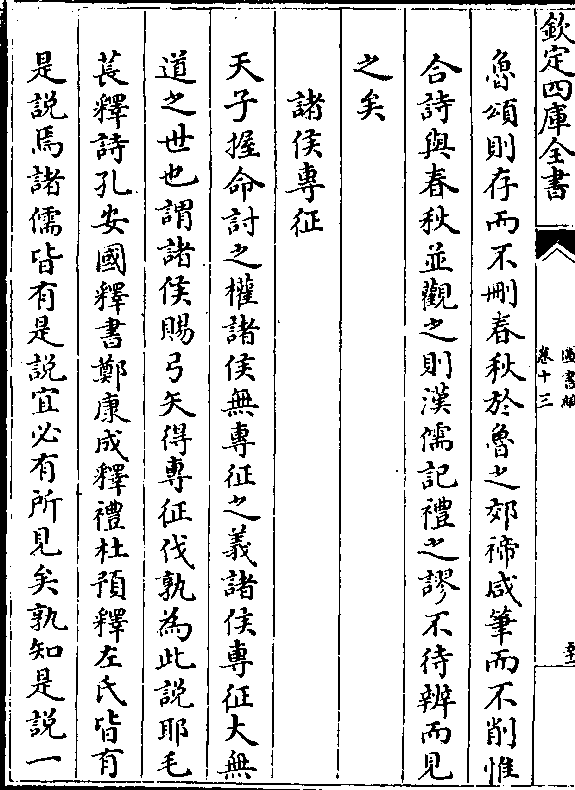 欽定四庫全書
圖書編
卷十三
魯頌則存而不刪春秋於魯之郊禘咸筆而不削惟
合詩與春秋並觀之則漢儒記禮之謬不待辨而見
之矣
諸侯專征
天子握命討之權諸侯無專征之義諸侯專征大無
道之世也謂諸侯賜弓矢得專征伐孰為此說耶毛
萇釋詩孔安國釋書鄭康成釋禮杜預釋左氏皆有
是說焉諸儒皆有是說宜必有所見矣孰知是說一